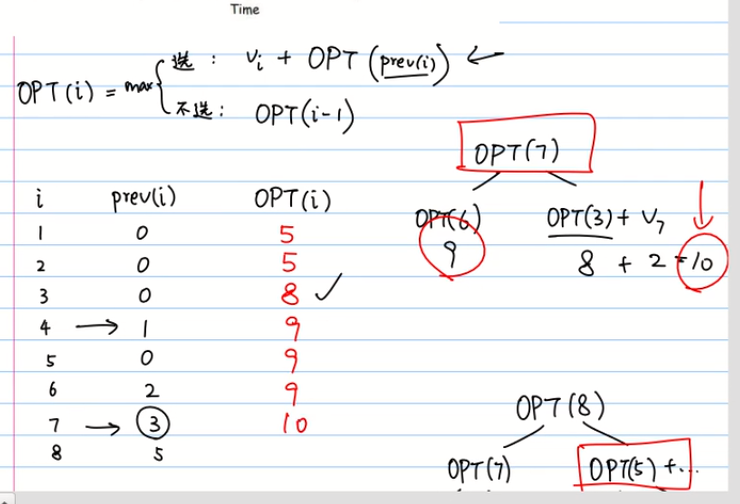 Time
OPT(i) = max{ 选: vi + OPT(prev(i)) ←
不选: OPT(i-1)
i prev(i) OPT(i)
1 0 5
2 0 5
3 0 8 ✓
4 → 1 9
5 0 9
6 2 9
7 → 3 10
8 5
OPT(7)
OPT(6) OPT(3) + v7
9 8 + 2 = 10
OPT(8)
OPT(7) OPT(5) + ...